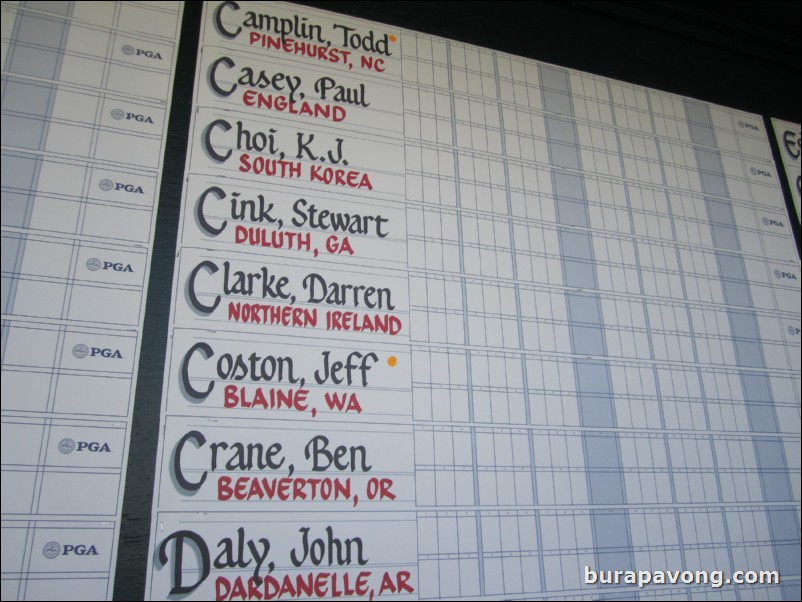 Camplin, Todd
PINEHURST, NC
Casey, Paul
ENGLAND
Choi, K.J.
SOUTH KOREA
Cink, Stewart
DULUTH, GA
Clarke, Darren
NORTHERN IRELAND
Coston, Jeff
BLAINE, WA
Crane, Ben
BEAVERTON, OR
Daly, John
DARDANELLE, AR
PGA
PGA
PGA
PGA
PGA
PGA
PGA
PGA
PGA
PGA
PGA
PGA
burapavong.com